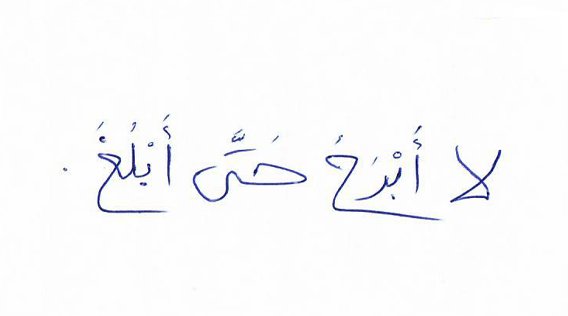 لا أَبْرَحُ حَتَّى أَبْلُغَ .